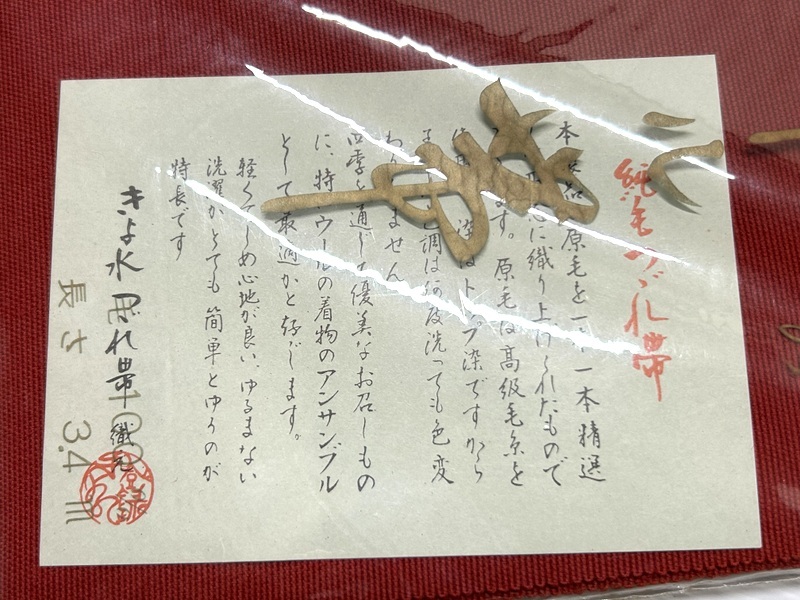 純毛つづれ帯
本 品 原毛を一本一本精選
心に織り上げられたもので
ます。原毛は高級毛糸を
染はトップ染ですから
色調は何度洗っても色変
わりません
四季を通じて優美なお召しもの
に、特にウールの着物のアンサンブル
として最適かと存じます。
軽くてしめ心地が良い、ゆるまない
洗濯がとても簡単とゆうのが
特長です
きよ水つづれ帯 織元
毛100
長さ 3.4m